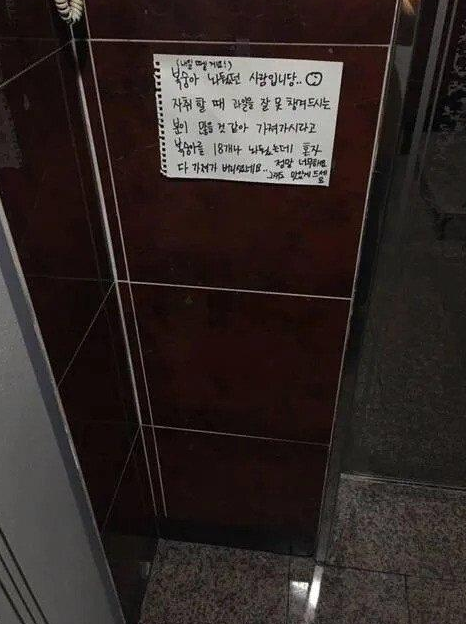 (내일 뗄게요!)
복숭아 놔뒀던 사람입니당.. ☹
자취 할 때 과일을 잘 못 챙겨드시는
분이 많을 것 같아 가져가시라고
복숭아를 18개나 놔뒀는데 혼자
다 가져가 버리셨네요.. 정말 너무해요
그래도 맛있게 드세요